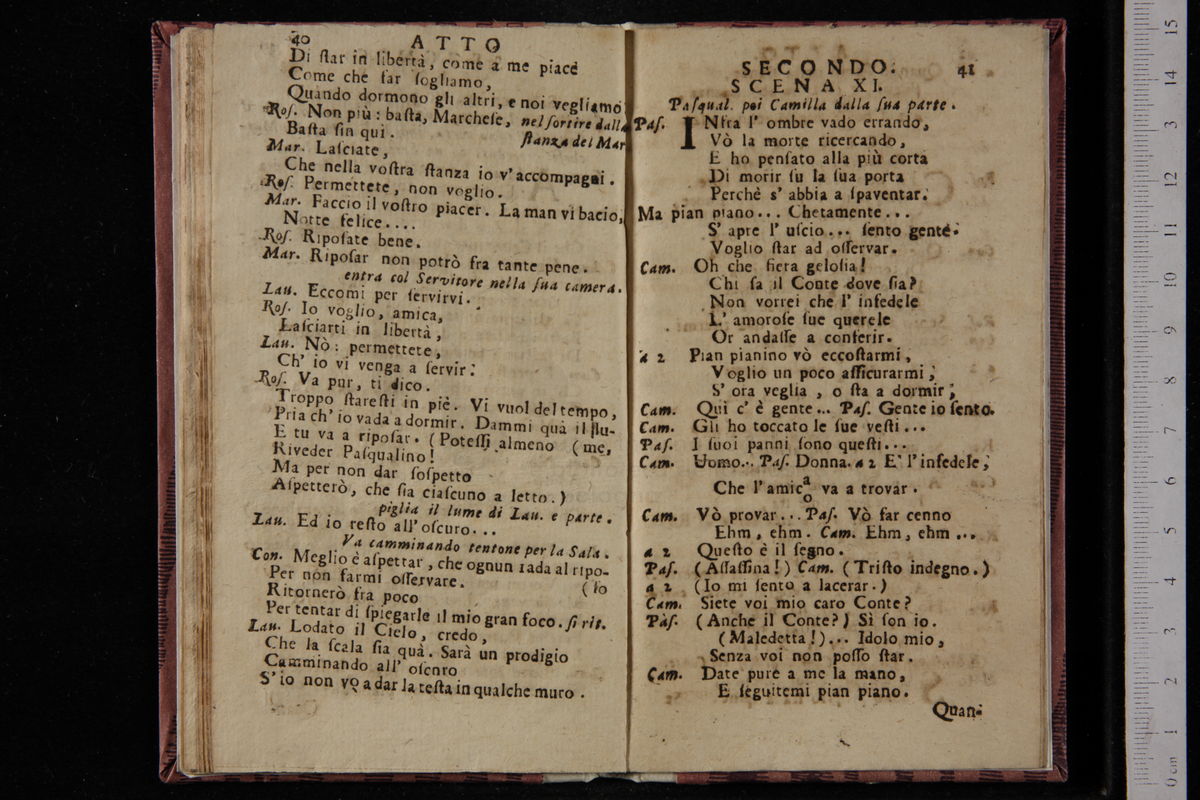 40 ATTO
Di ſtar in libertà, come a me piace
Come che far ſogliamo,
Quando dormono gli altri, e noi vegliamo
Roſ. Non più: baſta, Marcheſe, nel ſortire dalla
Baſta fin qui. ſtanza del Mar
Mar. Laſciate,
Che nella voſtra ſtanza io v'accompagni.
Roſ. Permettete, non voglio.
Mar. Faccio il voſtro piacer. La man vi bacio,
Notte felice....
Roſ. Ripoſate bene.
Mar. Ripoſar non potrò fra tante pene.
entra col Servitore nella ſua camera.
Lau. Eccomi per ſervirvi.
Roſ. Io voglio, amica,
Laſciarti in libertà,
Lau. Nò: permettete,
Ch' io vi venga a ſervir.
Roſ. Va pur, ti dico.
Troppo ſtareſti in piè. Vi vuol del tempo,
Pria ch' io vada a dormir. Dammi quà il lu-
E tu va a ripoſar. (Poteſſi almeno (me,
Riveder Paſqualino!
Ma per non dar ſoſpetto
Aſpetterò, che ſia ciaſcuno a letto.)
piglia il lume di Lau. e parte.
Lau. Ed io reſto all' oſcuro...
Va camminando tentone per la Sala.
Con. Meglio è aſpettar, che ognun vada al ripo-
Per non farmi oſſervare. (ſo
Ritornerò fra poco
Per tentar di ſpiegarle il mio gran foco. ſi rit.
Lau. Lodato il Cielo, credo,
Che la ſcala ſia quà. Sarà un prodigio
Camminando all' oſcuro
S' io non vo a dar la teſta in qualche muro.
SECONDO. 41
SCENA XI.
Paſqual. poi Camilla dalla ſua parte.
Paſ. INfra l' ombre vado errando,
Vò la morte ricercando,
E ho penſato alla più corta
Di morir ſu la ſua porta
Perchè s' abbia a ſpaventar.
Ma pian piano... Chetamente...
S' apre l' uſcio... ſento gente.
Voglio ſtar ad oſſervar.
Cam. Oh che fiera geloſia!
Chi ſa il Conte dove ſia?
Non vorrei che l' infedele
L' amoroſe ſue querele
Or andaſſe a conferir.
a 2 Pian pianino vò eccoſtarmi,
Voglio un poco aſſicurarmi,
S' ora veglia, o ſta a dormir,
Cam. Qui c' è gente... Paſ. Gente io ſento.
Cam. Gli ho toccato le ſue veſti...
Paſ. I ſuoi panni ſono queſti...
Cam. Uomo... Paſ. Donna. a 2 E' l'infedele,
Che l'amic a/o va a trovar.
Cam. Vò provar... Paſ. Vò far cenno
Ehm, ehm. Cam. Ehm, ehm...
a 2 Queſto è il ſegno.
Paſ. (Aſſaſſina!) Cam. (Triſto indegno.)
a 2 (Io mi ſento a lacerar.)
Cam. Siete voi mio caro Conte?
Paſ. (Anche il Conte?) Sì ſon io.
(Maledetta!)... Idolo mio,
Senza voi non poſſo ſtar.
Cam. Date pure a me la mano,
E ſeguitemi pian piano.
Quan-
0 cm 1 2 3 4 5 6 7 8 9 10 11 12 13 14 15